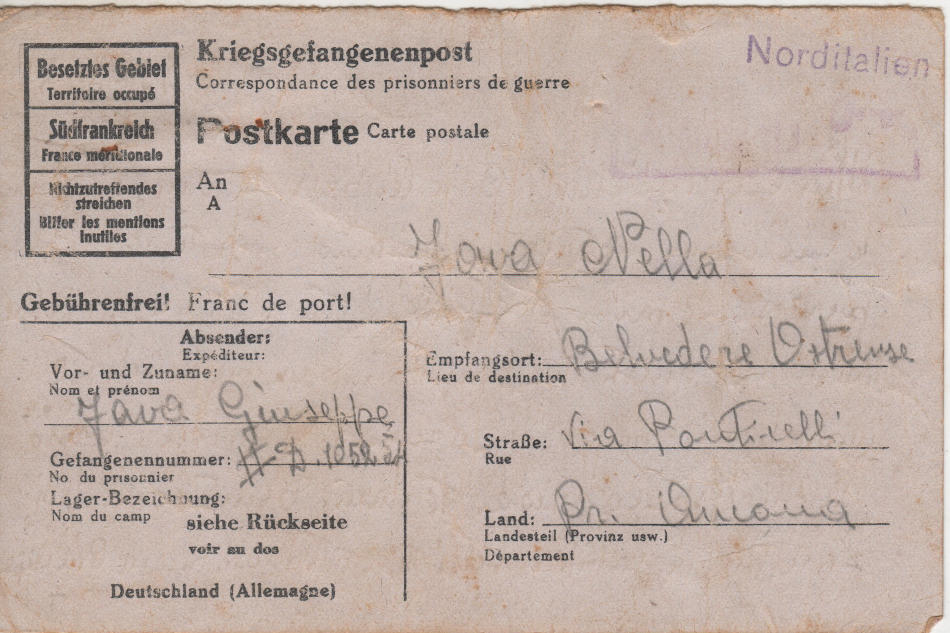 Besetztes Gebiet
Territoire occupé
Südfrankreich
France méridionale
Nichtzutreffendes
streichen
Biffer les mentions
inutiles
Kriegsgefangenenpost
Correspondance des prisonniers de guerre
Postkarte Carte postale
Norditalien
An
A
Java Nella
Gebührenfrei! Franc de port!
Absender:
Expéditeur:
Vor- und Zuname:
Nom et prénom
Java Giuseppe
Gefangenennummer:
No. du prisonnier
Lager-Bezeichnung:
Nom du camp
siehe Rückseite
voir au dos
Deutschland (Allemagne)
Empfangsort: Belvedere Ostrense
Lieu de destination
Straße: Via Ponticelli
Rue
Land: Pr. Ancona
Landesteil (Provinz usw.)
Département